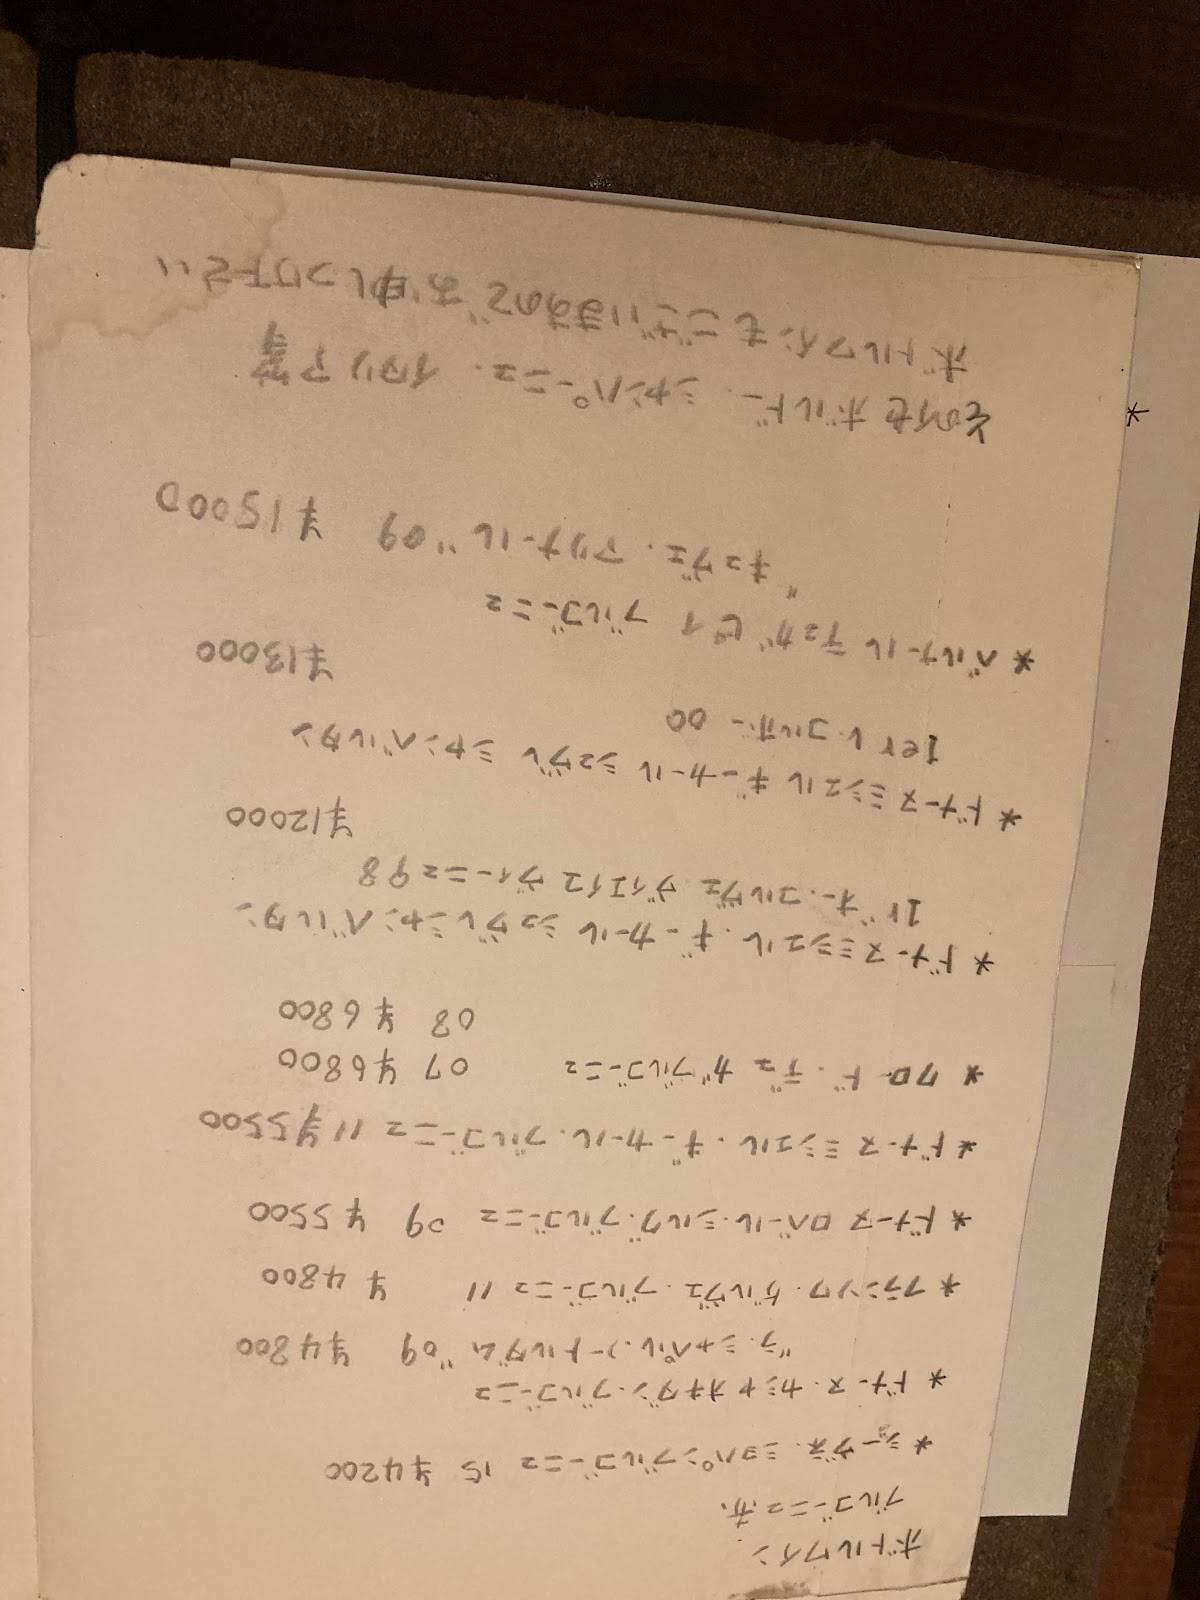 ボトルワイン
ブルゴーニュ 赤
* ジョーヴォ・ショパン ブルゴーニュ 15 ¥4200
* ドメーヌ・カシャ オキダン・ブルゴーニュ
"ラ・シャペル・ノートルダム" 09 ¥4800
* フランソワ・ゲルヴェ・ブルゴーニュ 11 ¥4800
* ドメーヌ ロベール・シルグ・ブルゴーニュ 09 ¥5500
* ドメーヌ ミシェル・ギーカール・ブルゴーニュ 11 ¥5500
* クロード・デュガ ブルゴーニュ 07 ¥6800
08 ¥6800
* ドメーヌ ミシェル・ギーカール ジュブレ シャンベルタン
オー・コルヴェ ヴィエイユ ヴィーニュ 98
¥12000
* ドメーヌ ミシェル ギーカール ジュヴレ シャンベルタン
1er レ コルボー 00
¥13000
* ベルナール デュガ ピィ ブルゴーニュ
"キュヴェ・アリナール" 09 ¥15000
その他 ボルドー・シャンパーニュ・イタリア 等
ボトルワインもございますので お申しつけ下さい
*